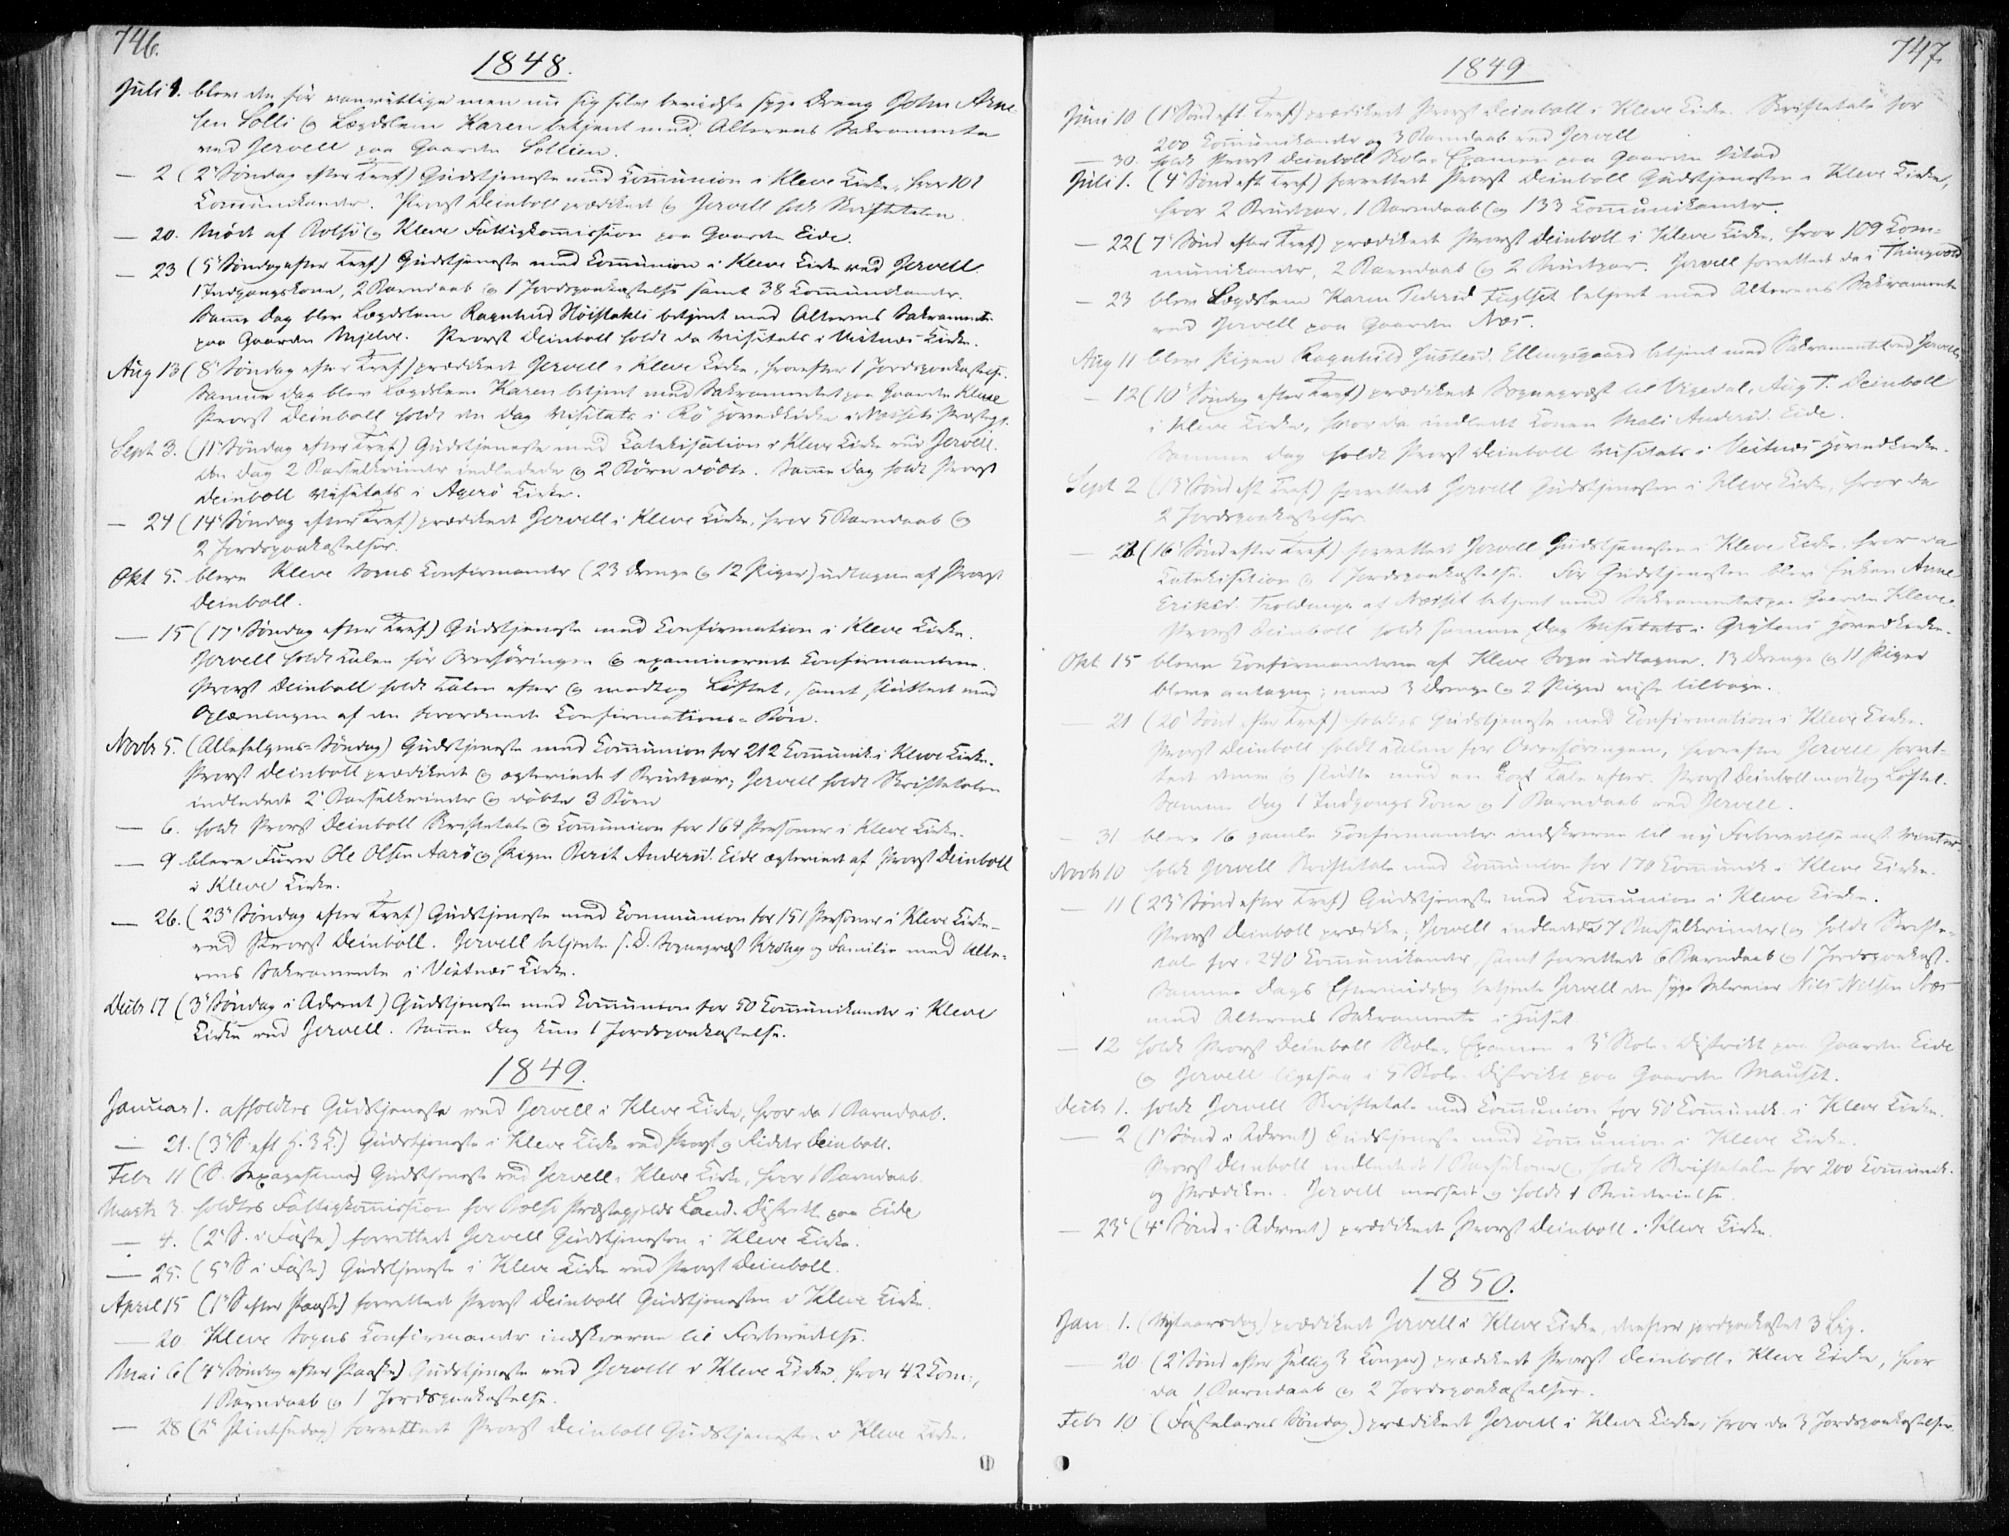 746.
1848.
Juli 1. blev den før vanvittige men nu sig selv bevidste syge Dreng John Arne-
sen Solli og Lægdslem Karen betjent med Alterens Sakramente
ved Jervell paa Gaarden Sollien.
— 2 (2 Søndag efter Tref) Gudstjeneste med Communion i Kleve Kirke, hvor 101
Communikanter. Provst Deinboll prædikede og Jervell holdt Skriftetalen.
— 20. Mødt af Bolsø og Kleve Fattigkommission paa Gaarden Eide.
— 23 (5 Søndag efter Tref) Gudstjeneste med Communion i Kleve Kirke ved Jervell.
1 Indgangskone, 2 Barndaab og 1 Jordspaakastelse samt 38 Communikanter.
Samme Dag blev Lægdslem Ragnhild betjent med Alterens Sakramente
paa Gaarden Mjelve. Provst Deinboll holdt da Visitats i Veitnæs Kirke.
Aug 13 (8 Søndag efter Tref) prædikede Jervell i Kleve Kirke, hvorefter 1 Jordspaakastelse.
Samme Dag blev Lægdslem Karen betjent med Sakramentet paa Gaarden Kleve
Provst Deinboll holdt den Dag Visitats i Rø Hovedkirke i Næssets Præstegj.
Sept 3. (11 Søndag efter Tref) Gudstjeneste med Catekisation i Kleve Kirke ved Jervell.
den Dag 2 Barselkvinder indledede og 2 Børn døbte. Samme Dag holdt Provst
Deinboll Visitats i Agerø Kirke.
— 24 (14 Søndag efter Tref) prædikede Jervell i Kleve Kirke, hvor 5 Barndaab og
2 Jordspaakastelser.
Okt 5. bleve Kleve Sogns Confirmander (23 Drenge og 12 Piger) udtagne af Provst
Deinboll.
— 15 (17 Søndag efter Tref) Gudstjeneste med Confirmation i Kleve Kirke.
Jervell holdt Talen før Overhøringen og examinerede Confirmanderne.
Provst Deinboll holdt Talen efter og modtog Løftet, samt sluttede med
Oplæsningen af den forordnede Confirmations-Bøn.
Novbr 5. (Allehelgens-Søndag) Gudstjeneste med Communion for 212 Communik. i Kleve Kirke.
Provst Deinboll prædikede og ægteviede 1 Brudepar; Jervell holdt Skriftetalen
indledede 2 Barselkvinder og døbte 3 Børn
— 6. holdt Provst Deinboll Skriftetale og Communion for 164 Personer i Kleve Kirke.
— 9. bleve Furer Ole Olsen Aarø og Pigen Berit Andersd. Eide ægteviede af Provst Deinboll
i Kleve Kirke.
— 26. (23 Søndag efter Tref) Gudstjeneste med Communion for 151 Personer i Kleve Kirke
ved Provst Deinboll. Jervell betjente s. D. Sognepræst Krohg og Familie med Alte-
rens Sakramente i Veitnæs Kirke.
Decbr 17 (3 Søndag i Advent) Gudstjeneste med Communion for 50 Communikanter i Kleve
Kirke ved Jervell. Samme Dag kun 1 Jordspaakastelse.
1849.
Januar 1. afholdtes Gudstjeneste ved Jervell i Kleve Kirke, hvor da 1 Barndaab.
— 21. (3 S. eft H. 3 K.) Gudstjeneste i Kleve Kirke ved Provst og Ridder Deinboll.
Febr 11 (S. Sexagesima) Gudstjeneste ved Jervell i Kleve Kirke, hvor 1 Barndaab.
Marts 3. holdtes Fattigkommission for Bolsø Præstegjelds Land-Distrikt paa Eide
— 4. (2 S. i Faste) forrettede Jervell Gudstjenesten i Kleve Kirke.
— 25. (5 S i Faste) Gudstjeneste i Kleve Kirke ved Provst Deinboll.
April 15 (1 S efter Paaske) forrettede Provst Deinboll Gudstjenesten i Kleve Kirke.
— 20. Kleve Sogns Confirmander indskrevne til Forberedelse.
Mai 6 (4 Søndag efter Paaske) Gudstjeneste ved Jervell i Kleve Kirke, hvor 42 Com.,
1 Barndaab og 1 Jordspaakastelse.
— 28 (2 Pintsedag) forrettede Provst Deinboll Gudstjenesten i Kleve Kirke.
747.
1849
Juni 10 (1 Sønd eft Tref) prædikede Provst Deinboll i Kleve Kirke. Skriftetale for
200 Communikanter og 3 Barndaab ved Jervell
— 30. holdt Provst Deinboll Skole-Examen paa Gaarden Istad
Juli 1. (4 Sønd eft Tref) forrettede Provst Deinboll Gudstjenesten i Kleve Kirke,
hvor 2 Brudepar, 1 Barndaab og 133 Communikanter.
— 22 (7 Sønd efter Tref) prædikede Provst Deinboll i Kleve Kirke, hvor 109 Com-
munikanter, 2 Barndaab og 2 Brudepar. Jervell forrettede da i Thingvold
— 23 blev Lægdslem Karen Pedersd Fuglset betjent med Alterens Sakramente
ved Jervell paa Gaarden Næs.
Aug 11 blev Pigen Ragnhild Justesd. Ellingsgaard betjent med Sakramentet ved Jervell
— 12 (10 Søndag efter Tref) prædikede Sognepræst til Vigedal, Aug T. Deinboll
i Kleve Kirke, hvor da indledt Konen Mali Andersd. Eide.
Samme Dag holdt Provst Deinboll Visitats i Veitnæs Hovedkirke.
Sept 2 (13 Sønd eft Tref) forrettede Jervell Gudstjenesten i Kleve Kirke, hvor da
2 Jordspaakastelser.
— 23 (16 Sønd efter Tref) forrettede Jervell Gudstjenesten i Kleve Kirke, hvor da
Catekisation og 1 Jordspaakastelse. Før Gudstjenesten blev Enken Anne
Eriksd. af Nesset betjent med Sakramentet paa Gaarden Kleve.
Provst Deinboll holdt samme Dag Visitats i Grytens Hovedkirke.
Okt 15 bleve Confirmanderne af Kleve Sogn udtagne. 13 Drenge og 11 Piger
bleve antagne; men 3 Drenge og 2 Piger viste tilbage.
— 21 (20 Sønd efter Tref) holdtes Gudstjeneste med Confirmation i Kleve Kirke.
Provst Deinboll holdt Talen før Overhøringen, hvorefter Jervell forret-
tede denne og slutte med en kort Tale efter. Provst Deinboll modtog Løftet.
Samme Dag 1 Indgangs Kone og 1 Barndaab ved Jervell.
— 31 bleve 16 gamle Confirmander indskrevne til ny Forberedelse næst Vinter.
Novbr 10 holdt Jervell Skriftetale med Communion for 170 Communik. i Kleve Kirke.
— 11 (23 Sønd efter Tref) Gudstjeneste med Communion i Kleve Kirke.
Provst Deinboll prædike; Jervell indledede 7 Barselkvinder og holdt Skrifte-
tale for 240 Communikanter, samt forrettede 6 Barndaab og 1 Jordspaakast.
Samme Dags Eftermiddag betjente Jervell den syge Nils Nilsen
med Alterens Sakramente i Huset
— 12 holdt Provst Deinboll Skole-Examen i 3 Skole-Distrikt paa Gaarden Eide
og Jervell ligesaa i 5 Skole-Distrikt paa Gaarden Mauset.
Decbr 1. holdt Jervell Skriftetale med Communion for 50 Communik. i Kleve Kirke.
— 2 (1 Sønd i Advent) Gudstjeneste med Communion i Kleve Kirke.
Provst Deinboll indledede 1 Barselkone og holdt Skriftetalen for 200 Communik.
og Prædiken. Jervell messede og holdt 1 Brudevielse.
— 23 (4 Sønd i Advent) prædikede Provst Deinboll i Kleve Kirke.
1850.
Jan 1. (Nytaarsdag) prædikede Jervell i Kleve Kirke, desuden jordpaakastet 3 Lig.
— 20 (2 Sønd efter Hellig 3 Konger) prædikede Provst Deinboll i Kleve Kirke, hvor
da 1 Barndaab og 2 Jordspaakastelser.
Febr 10 (Fastelavns Søndag) prædikede Jervell i Kleve Kirke, hvor da 3 Jordspaakastelser.